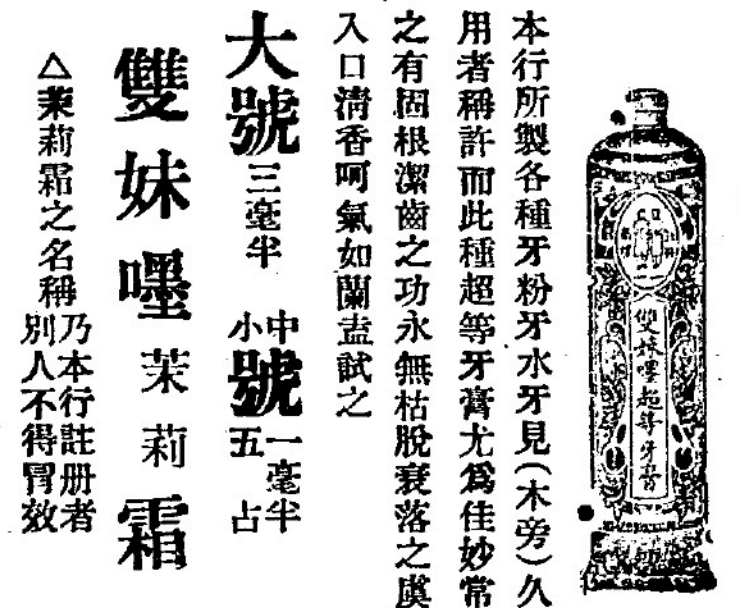 雙妹嚜超等牙膏
本行所製各種牙粉牙水牙見(木旁)久
用者稱許而此種超等牙膏尤爲佳妙常
之有固根潔齒之功永無枯脫衰落之虞
入口淸香呵氣如蘭盍試之
大號三毫半
中號一毫半
小號五占
雙妹嚜茉莉霜
△茉莉霜之名稱
乃本行註册者
別人不得冒效